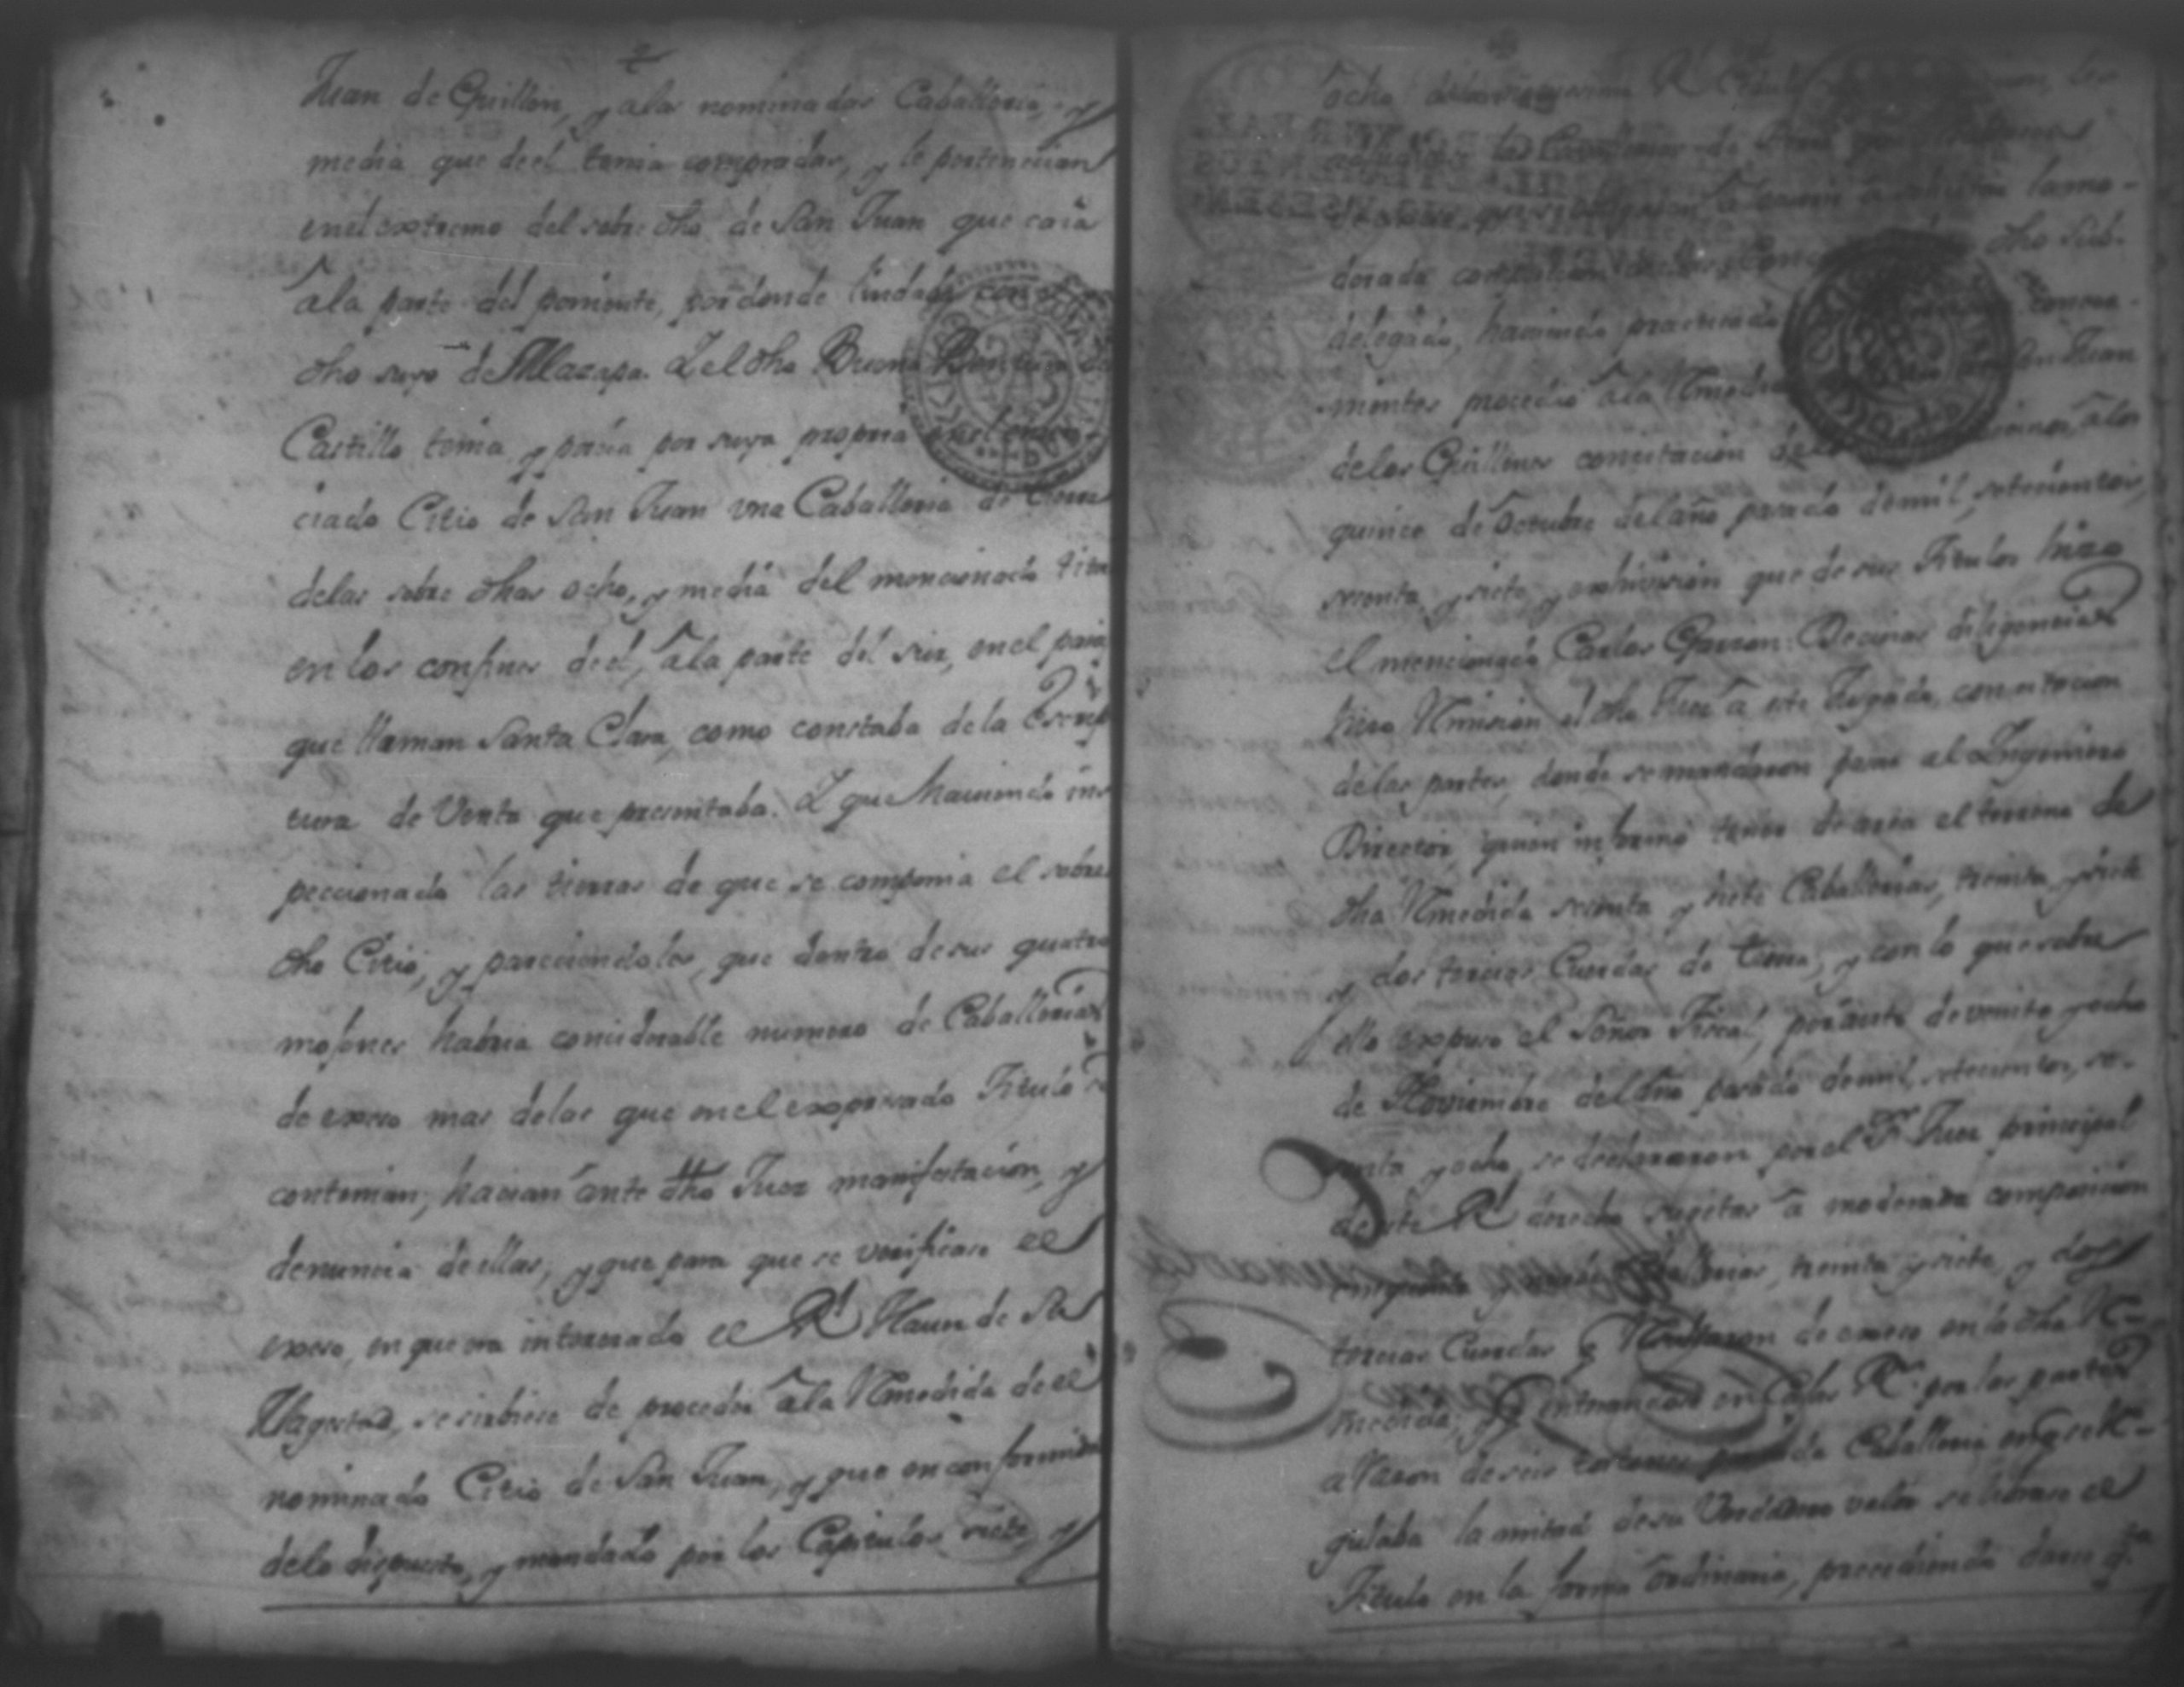 Juan de Guillen, y alas nominadas Caballeria, y
media que deel tenia compradas, y le pertenecian
enel extremo del sobre dho de San Juan que caia
ala parte del poniente, por donde lindaba con
dho suyo de Mazapa. Y el dho Buena Bentura de
Castillo tenia, y poseia por suya propria enel
ciado Citio de San Juan vna Caballeria de tierra
delas sobre dhas ocho, y media del mencionado titu
en los confines deel, ala parte del sur, en el para
que llaman Santa Clara, como constaba dela Escrip
tura de Venta que presentaba. Y que haviendo ins
peccionado las tierras de que se componia el sobre
dho Citio, y pareciendoles, que dentro desus quatro
mojones habria considerable numero de Caballerias
de exeso mas delas que enel expresado Titulo se
contenian, hacian ante dho Juez manifestacion, y
denuncia deellas, y que para que se verificase el
exeso, en que era interesado el Rl. Haver de Su
Magestad, se sirbiese de proceder ala Remedida de el
nominado Citio de San Juan, y que en conformidad
delo dispuesto, y mandado por los Capitulos siete, y
ocho
las Caballerias de
lamo-
derada composicion dho Sub-
delegado, haviendo practicado
mientos procedió ala Remedida San Juan
delos Guillenes con citacion delos alos
quince de Octubre del año pasado demil, setecientos,
secenta, y siete, y exhivicion que de sus Titulos hizo
el mencionado Carlos Garzon. De cuias diligencias
hizo Remision el dho Juez a este Juzgado, con citacion
delas partes, donde se mandaron pasar al Ingeniero
Director, quien informó tener de area el terreno de
dha Remedida secenta y siete Caballerias, treinta y siete
y dos tercias Cuerdas de tierra, y con lo que sobre
ello expuso el Señor Fiscal, por auto de veinte y ocho
de Noviembre del año pasado demil, setecientos, se-
senta y ocho, se declararon por el Sr. Juez principal
de este Rl. derecho sugetas a moderada composicion
cinquenta y nueve Caballerias, treinta y siete, y dos
tercias Cuerdas q. Resultaron de exeso en la dha Re-
medida, y enterandose en Cajas Rs. por las partes
a Razon de seis tostones por cada Caballeria en q. se Re-
gulaba la mitad desu Verdadero valor se librase el
Titulo en la forma ordinaria, precediendo darse qta